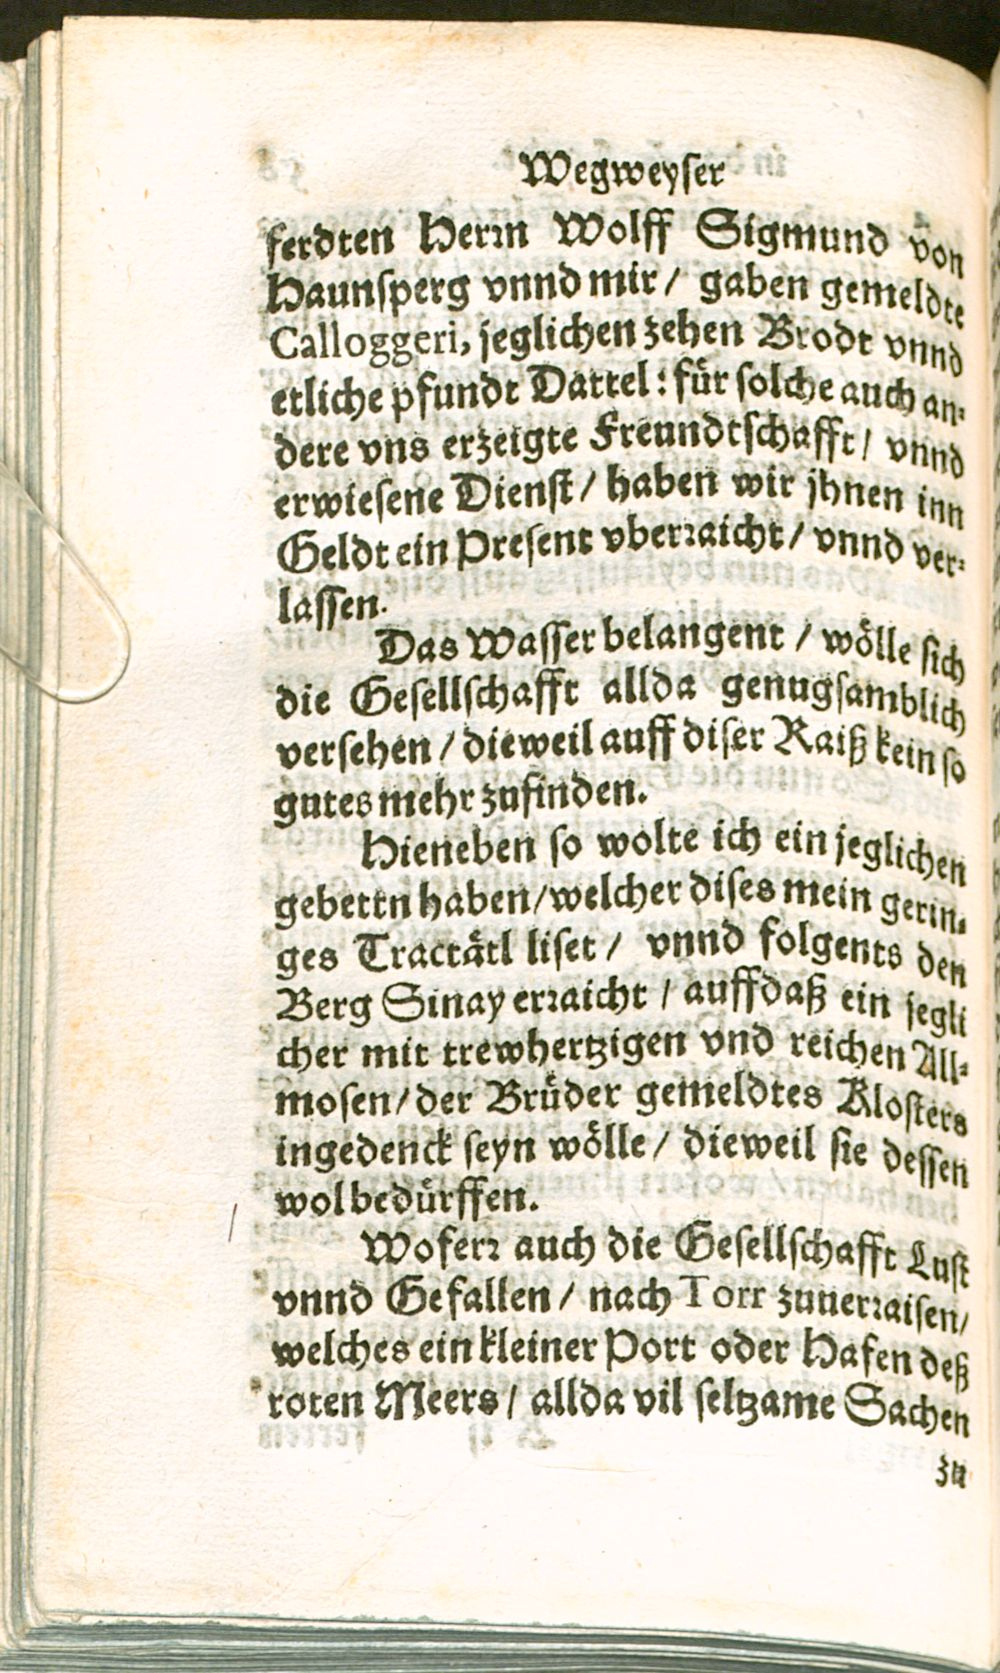 Wegweyser
ferdten Herꝛn Wolff Sigmund von
Haunſperg vnnd mir / gaben gemeldte
Calloggeri, jeglichen zehen Brodt vnnd
etliche pfundt Dattel: fuͤr ſolche auch an-
dere vns erzeigte Freundtſchafft / vnnd
erwieſene Dienſt / haben wir jhnen inn
Geldt ein Preſent vberꝛaicht / vnnd ver-
laſſen.
Das Waſſer belangent / woͤlle ſich
die Geſellſchafft allda genugſamblich
verſehen / dieweil auff diſer Raiß kein ſo
gutes mehr zufinden.
Hieneben ſo wolte ich ein jeglichen
gebettn haben / welcher diſes mein gerin-
ges Tractaͤtl liſet / vnnd folgents den
Berg Sinay erꝛaicht / auffdaß ein jegli
cher mit trewhertzigen vnd reichen All-
moſen / der Bruͤder gemeldtes Kloſters
ingedenck ſeyn woͤlle / dieweil ſie deſſen
wol beduͤrffen.
Woferꝛ auch die Geſellſchafft Luſt
vnnd Gefallen / nach Torr zuuerꝛaiſen /
welches ein kleiner Port oder Hafen deß
roten Meers / allda vil ſeltzame Sachen
zu